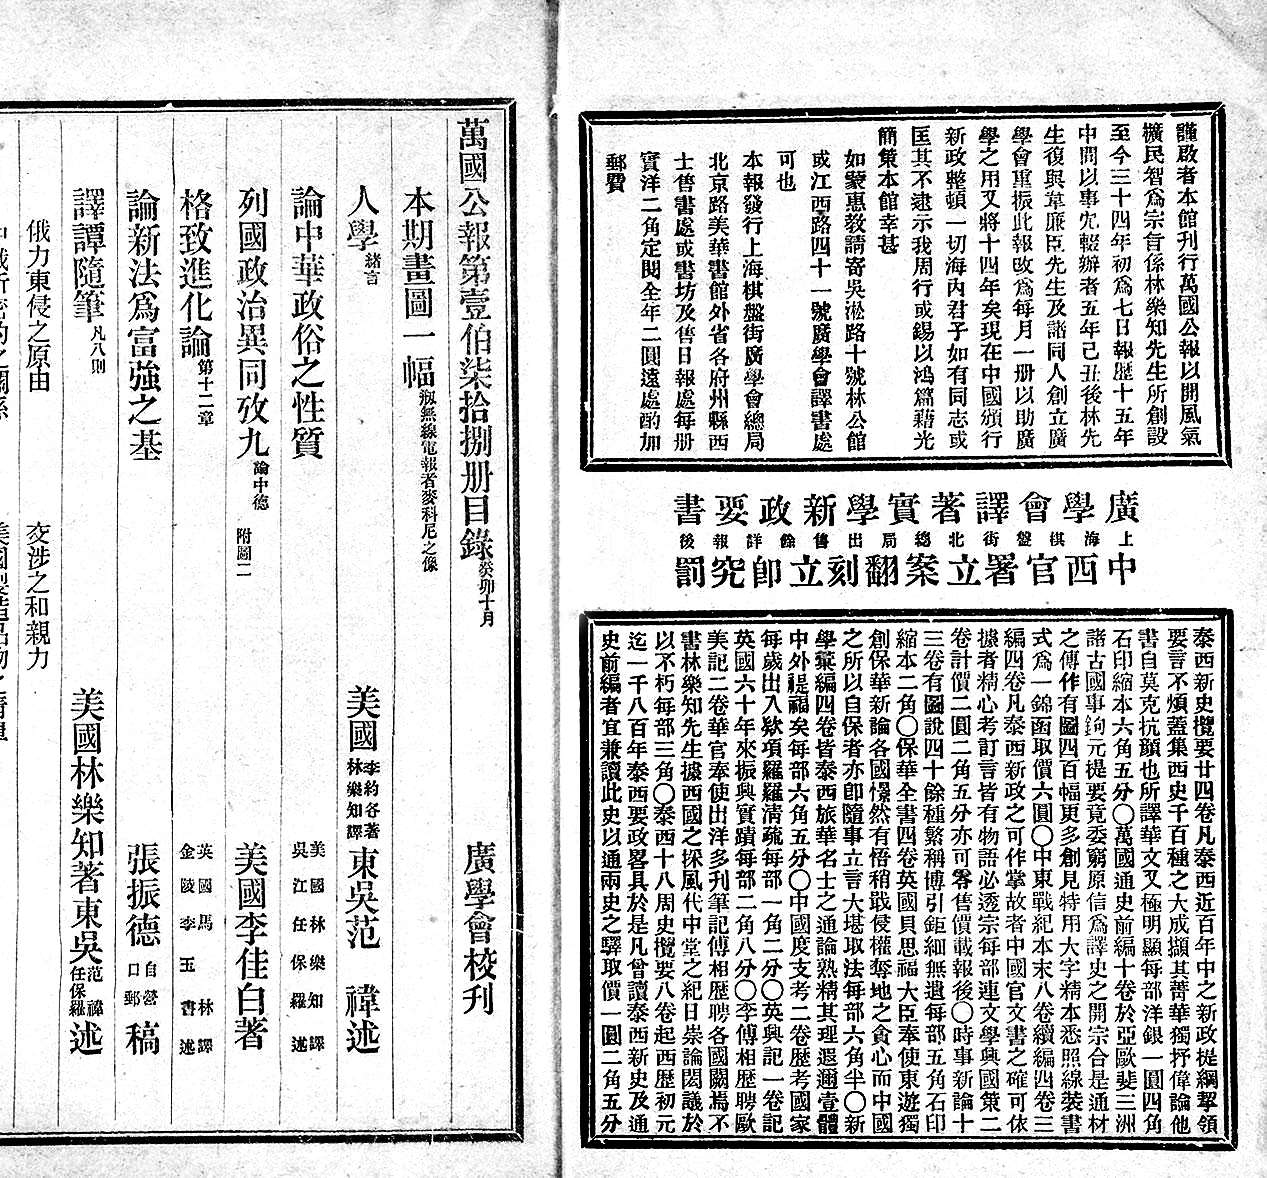 謹啟者本館刊行萬國公報以開風氣
擴民智爲宗旨係林樂知先生所創設
至今三十四年初爲七日報歷十五年
中間以事宂輟辦者五年己丑後林先
生復與韋廉臣先生及諸同人創立廣
學會重振此報改爲每月一册以助廣
學之用又將十四年矣現在中國頒行
新政整頓一切海內君子如有同志或
匡其不逮示我周行或錫以鴻篇藉光
簡策本館幸甚
如蒙惠教請寄吳淞路十號林公館
或江西路四十一號廣學會譯書處
可也
本報發行上海棋盤街廣學會總局
北京路美華書館外省各府州縣西
士售書處或書坊及售日報處每册
實洋二角定閱全年二圓遠處酌加
郵費
廣學會譯著實學新政要書
上海棋盤街北總局出售餘詳報後
中西官署立案翻刻立即究罰
泰西新史攬要廿四卷凡泰西近百年中之新政提綱挈領
要言不煩蓋集西史千百種之大成擷其菁華獨抒偉論他
書自莫克抗顏也所譯華文又極明顯每部洋銀一圓四角
石印縮本六角五分〇萬國通史前編十卷於亞歐斐三洲
諸古國事鉤元提要竟委窮原信爲譯史之開宗合是通材
之傳作有圖四百幅更多創見特用大字精本悉照線裝書
式爲一錦函取價六圓〇中東戰紀本末八卷續編四卷三
編四卷凡泰西新政之可作掌故者中國官文書之確可依
據者精心考訂言皆有物語必透宗每部連文學興國策二
卷計價二圓二角五分亦可零售價載報後〇時事新論十
三卷有圖說四十餘種繁稱博引鉅細無遺每部五角石印
縮本二角〇保華全書四卷英國貝思福大臣奉使東遊獨
創保華新論各國憬然有悟稍戢侵權奪地之貪心而中國
之所以自保者亦卽隨事立言大堪取法每部六角半〇新
學彙編四卷皆泰西旅華名士之通論熟精其理遐邇壹體
中外禔福矣每部六角五分〇中國度支考二卷歷考國家
每歲出入欵項羅羅清疏每部一角二分〇英興記一卷記
英國六十年來振興實蹟每部二角八分〇李傅相歷聘歐
美記二卷華官奉使出洋多刊筆記傅相歷聘各國闕焉不
書林樂知先生據西國之採風代中堂之紀日崇論閎議於
以不朽每部三角〇泰西十八周史攬要八卷起西歷初元
迄一千八百年泰西要政畧具於是凡曾讀泰西新史及通
史前編者宜兼讀此史以通兩史之驛取價一圓二角五分
萬國公報第壹伯柒拾捌册目錄 癸卯十月 廣學會校刊
本期畫圖一幅 刱無線電報者麥科尼之像
人學 緒言 美國 李約各著 林樂知譯 東吳范禕述
論中華政俗之性質 美國林樂知譯 吳江任保羅述
列國政治異同攷九 論中德 附圖二 美國李佳白著
格致進化論 第十二章 英國馬林譯 金陵李玉書述
論新法爲富強之基 張振德 自營口郵 稿
譯譚隨筆 凡八則 美國林樂知著東吳 范禕 任保羅 述
俄力東侵之原由 交涉之和親力